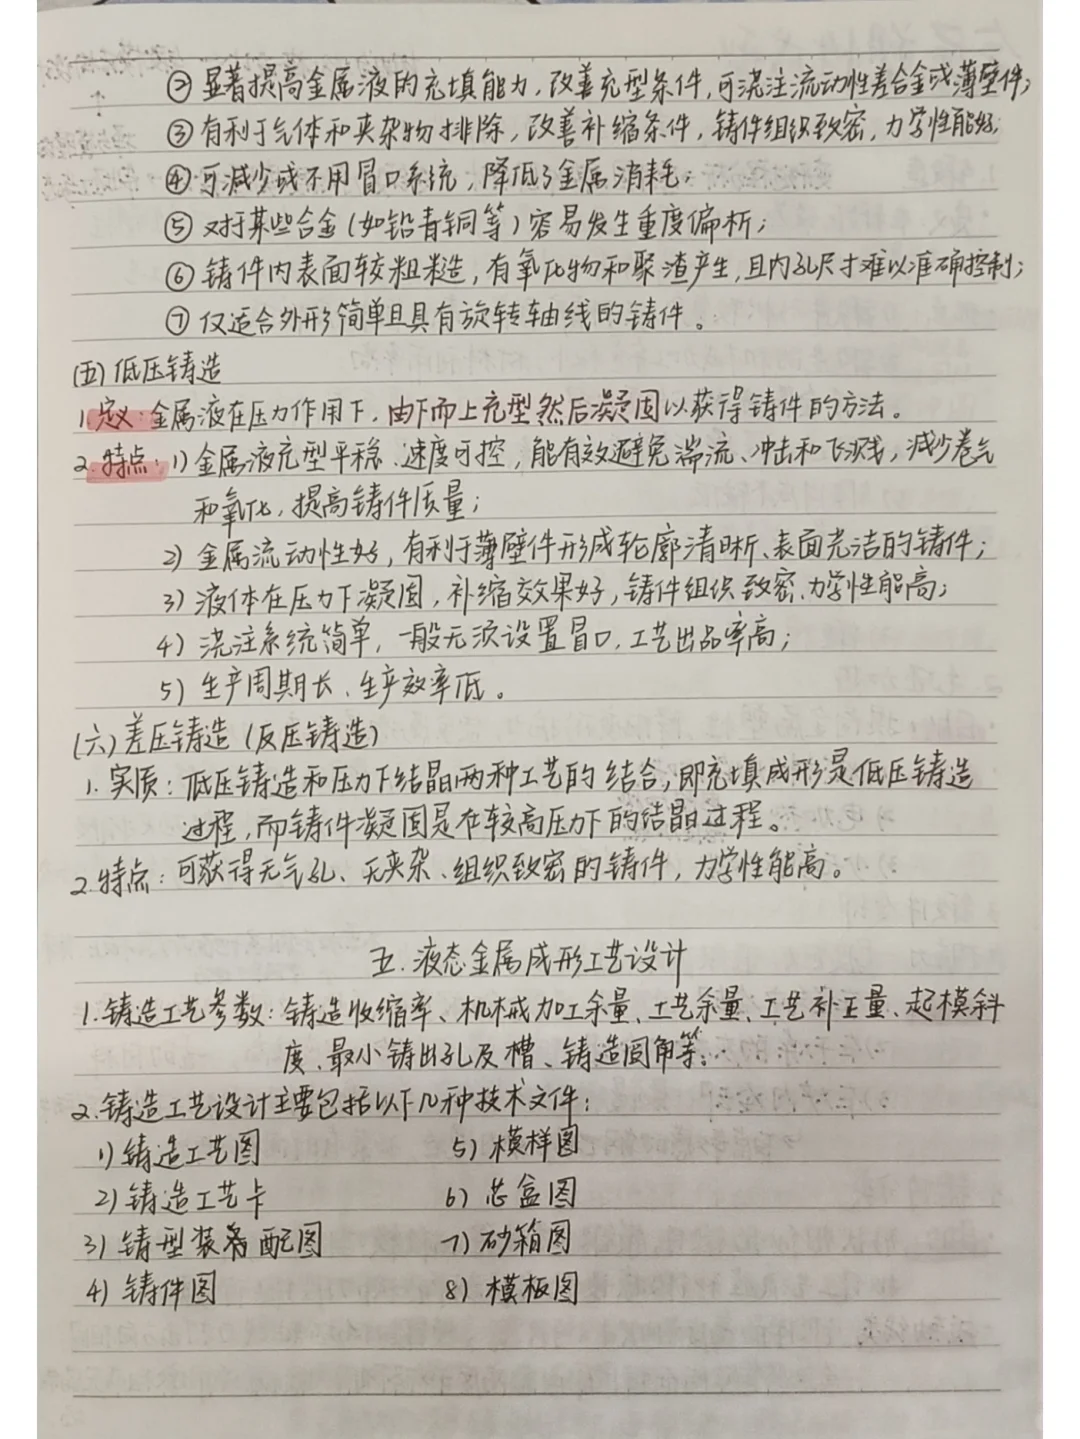 ② 显著提高金属液的充填能力,改善充型条件,可浇注流动性差合金或薄壁件;
③ 有利于气体和夹杂物排除,改善补缩条件,铸件组织致密,力学性能好;
④ 可减少或不用冒口系统,降低了金属消耗;
⑤ 对于某些合金(如铅青铜等)容易发生重度偏析;
⑥ 铸件内表面较粗糙,有氧化物和聚渣产生,且内孔尺寸难以准确控制;
⑦ 仅适合外形简单且具有旋转轴线的铸件。
(五)低压铸造
1.定义:金属液在压力作用下,由下而上充型然后凝固以获得铸件的方法。
2.特点:1)金属液充型平稳、速度可控,能有效避免湍流、冲击和飞溅,减少卷气
和氧化,提高铸件质量;
2)金属流动性好,有利于薄壁件形成轮廓清晰、表面光洁的铸件;
3)液体在压力下凝固,补缩效果好,铸件组织致密、力学性能高;
4)浇注系统简单,一般无须设置冒口,工艺出品率高;
5)生产周期长、生产效率低。
(六)差压铸造(反压铸造)
1.实质:低压铸造和压力下结晶两种工艺的结合,即充填成形是低压铸造
过程,而铸件凝固是在较高压力下的结晶过程。
2.特点:可获得无气孔、无夹杂、组织致密的铸件,力学性能高。
五.液态金属成形工艺设计
1.铸造工艺参数:铸造收缩率、机械加工余量、工艺余量、工艺补正量、起模斜
度、最小铸出孔及槽、铸造圆角等。
2.铸造工艺设计主要包括以下几种技术文件:
1)铸造工艺图 5)模样图
2)铸造工艺卡 6)芯盒图
3)铸型装备配图 7)砂箱图
4)铸件图 8)模板图